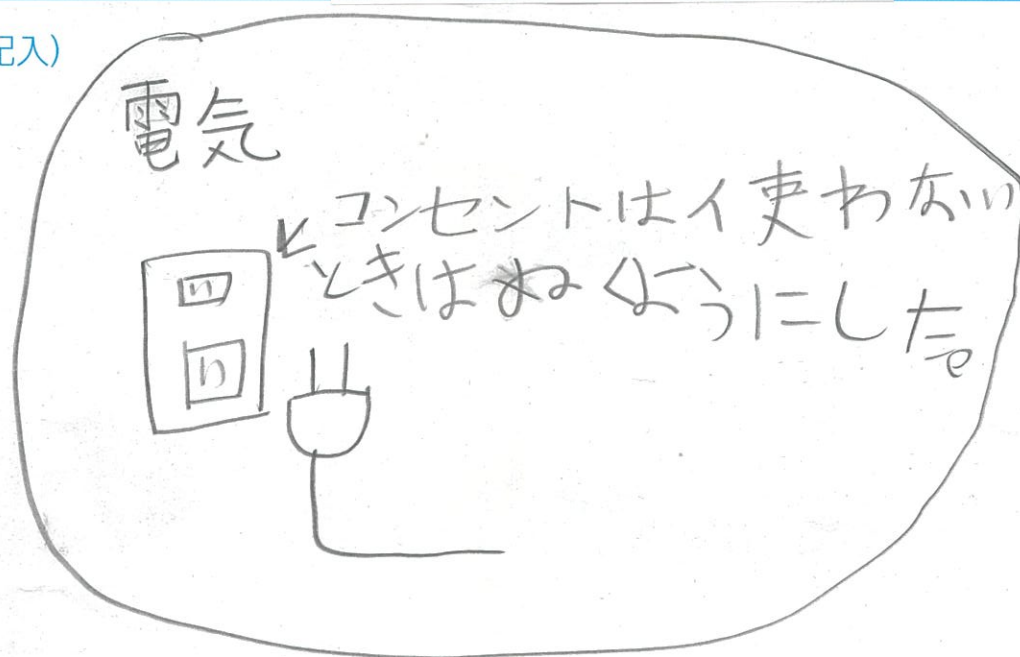 記入)
電気
コンセントは使わない
ときはぬくようにした。